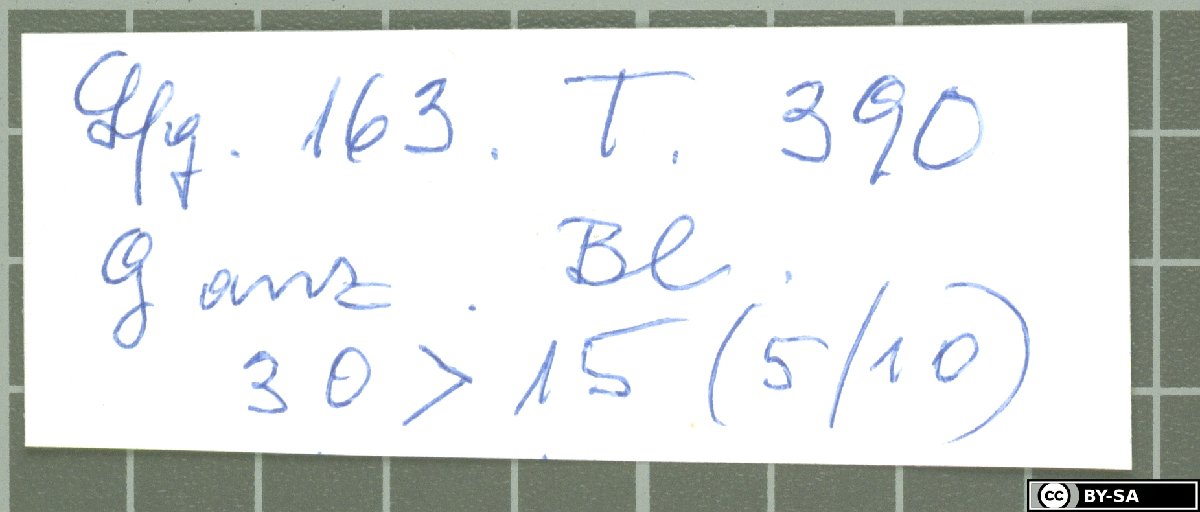 Lfg. 163. T. 390
Ganz. Bl.
30 > 15 (5/10)
CC BY-SA